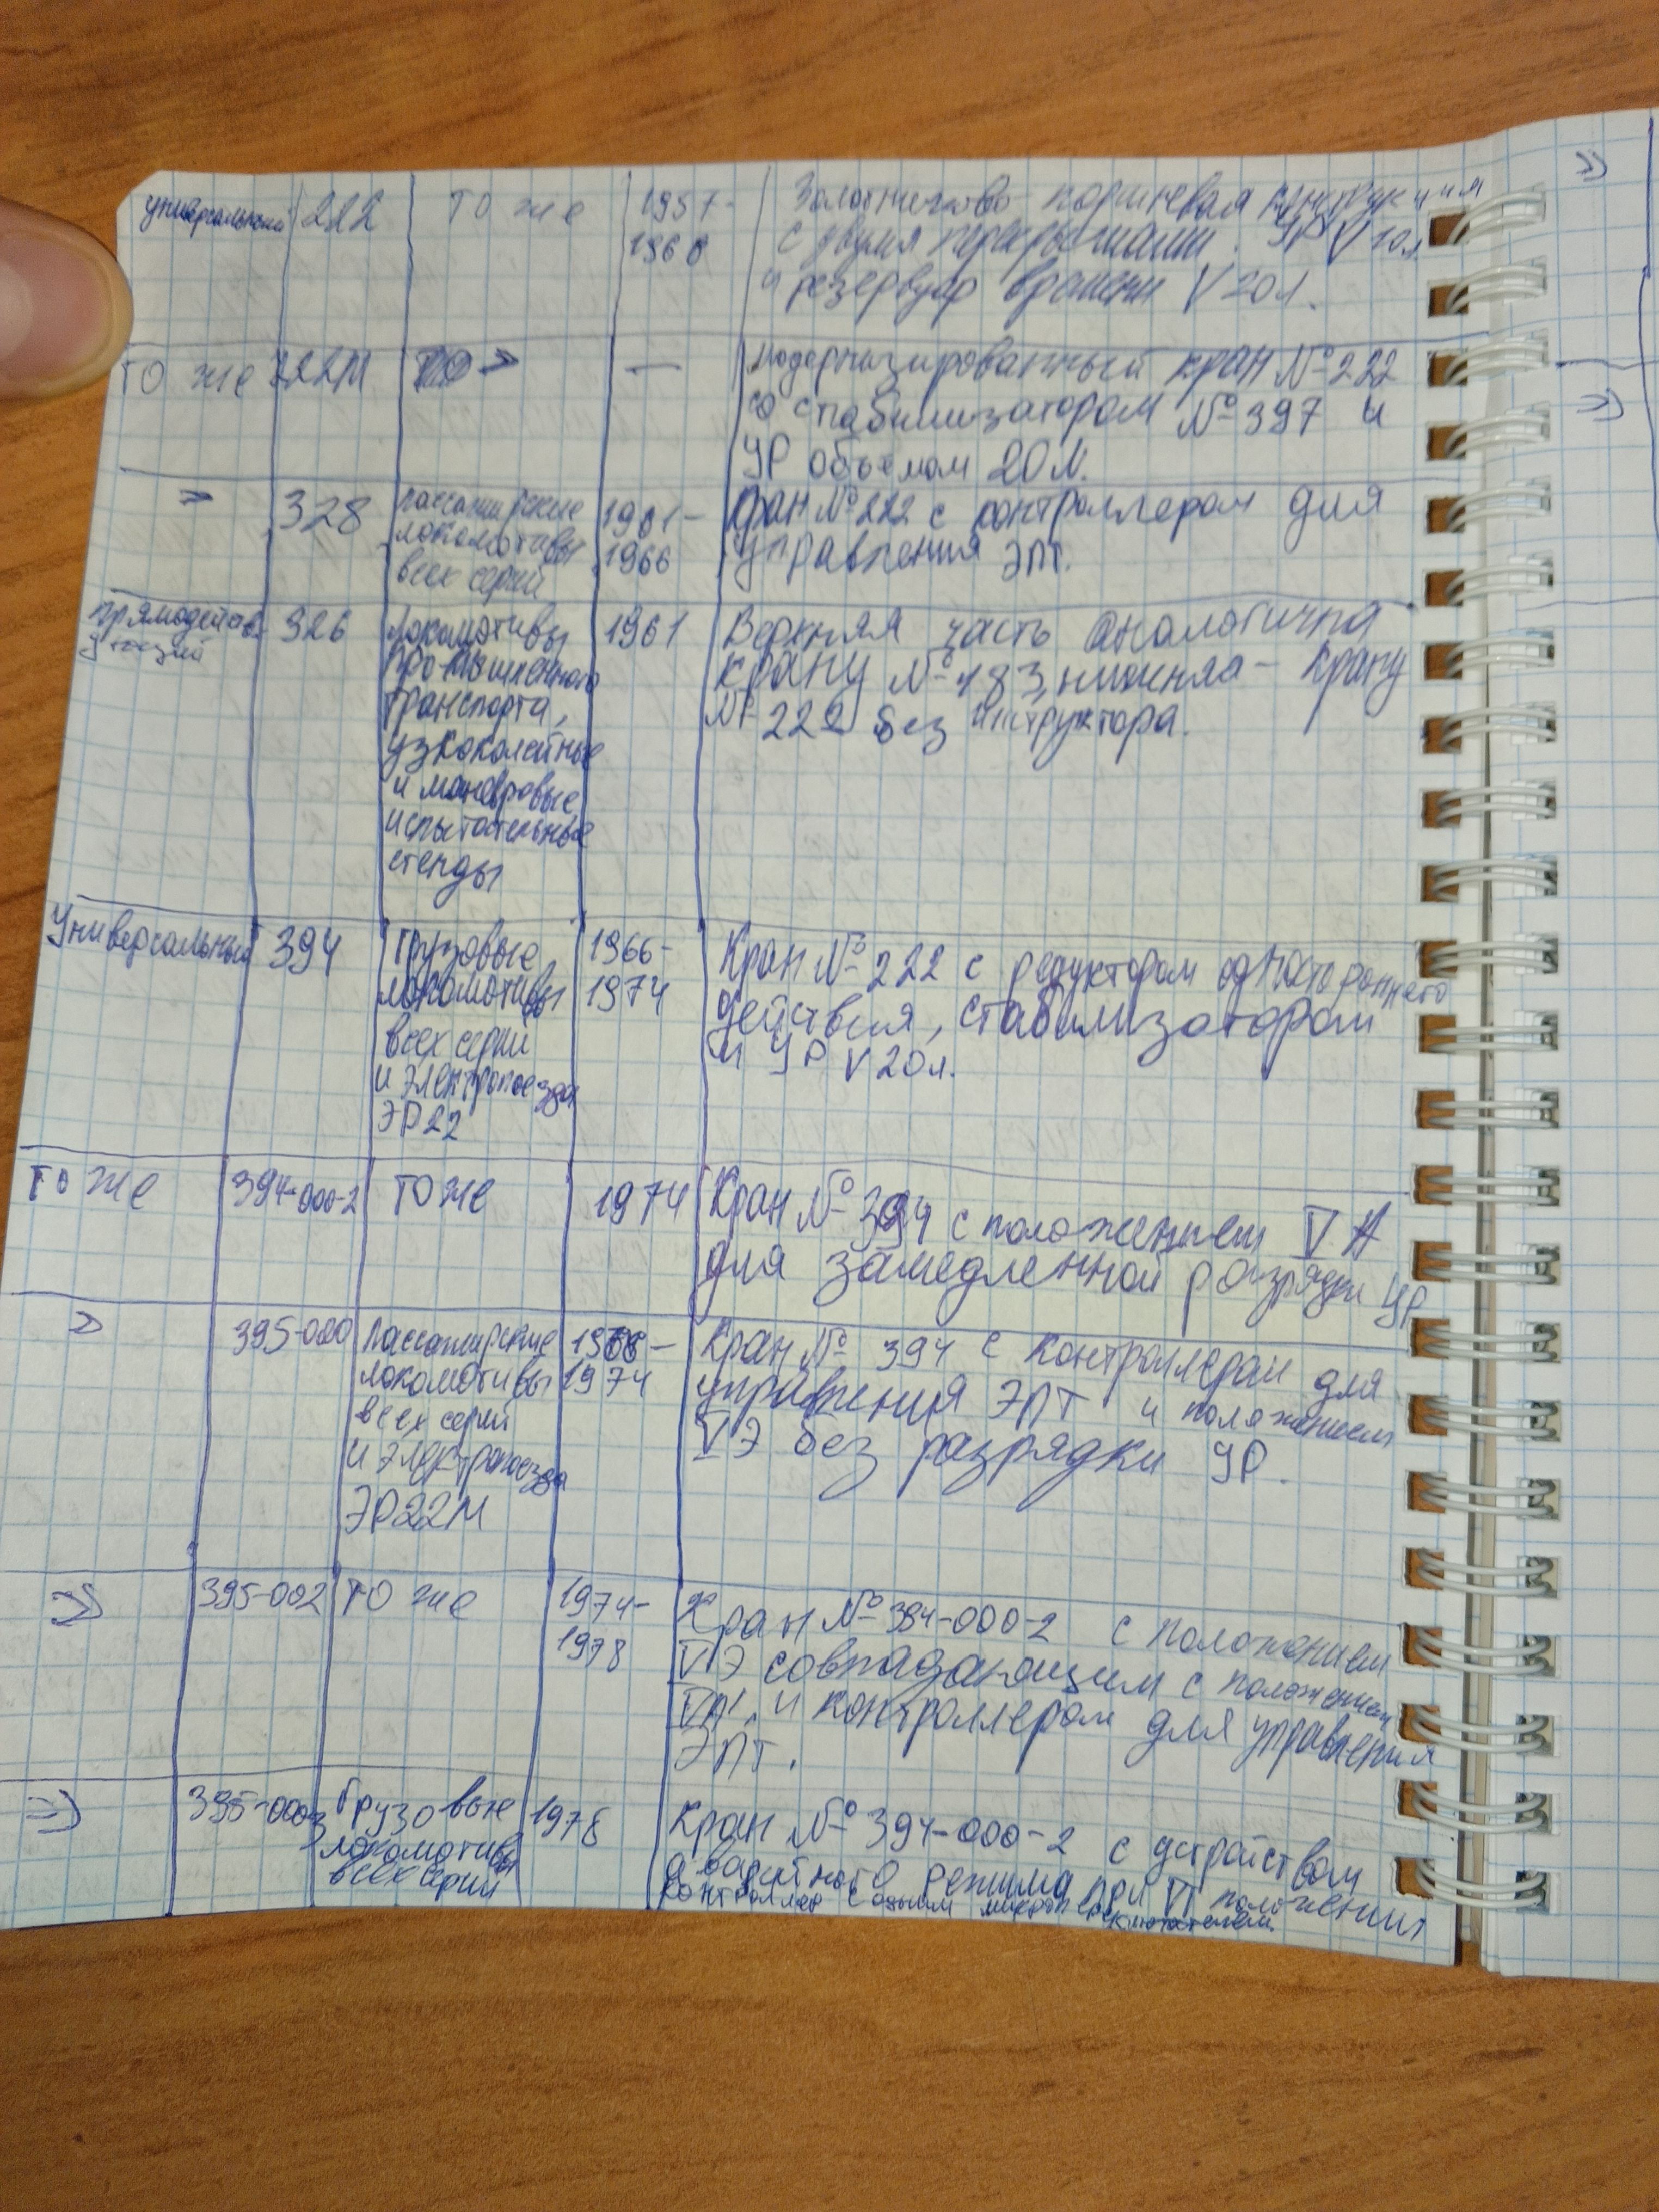 универсальный 222 то же 1957-1968 Золотниково-поршневая конструкция
с двумя перекрышами. УР V 20л
и резервуар времени V 20л.
то же 222М то » — модернизированный кран №222
со стабилизатором №397 и
УР объемом 20л.
» 328 пассажирские локомотивы всех серий 1961-1966 Кран №222 с контроллером для
управления ЭПТ.
прямодействующий 326 локомотивы промышленного транспорта, узкоколейные и маневровые испытательные стенды 1961 Верхняя часть аналогична
крану №183, нижняя - крану
№222 без
Универсальный 394 Грузовые локомотивы всех серий и электропоезда ЭР22 1966-1974 Кран №222 с редуктором одностороннего
действия, стабилизатором
и УР V 20л.
то же 394-000-2 то же 1974 Кран №394 с положением VA
для замедленной разрядки УР
» 395-000 пассажирские локомотивы всех серий и электропоезда ЭР22М 1966-1974 Кран № 394 с контроллером для
управления ЭПТ и положением
VЭ без разрядки УР.
=» 395-002 то же 1974-1978 Кран №394-000-2 с положением
VЭ совпадающим с положением
и контроллером для управления
ЭПТ.
=» 395-000-3 Грузовые локомотивы всех серий 1978 Кран №394-000-2 с устройством
режима при VI положении
контроллер с одним микропереключателем.
»
»